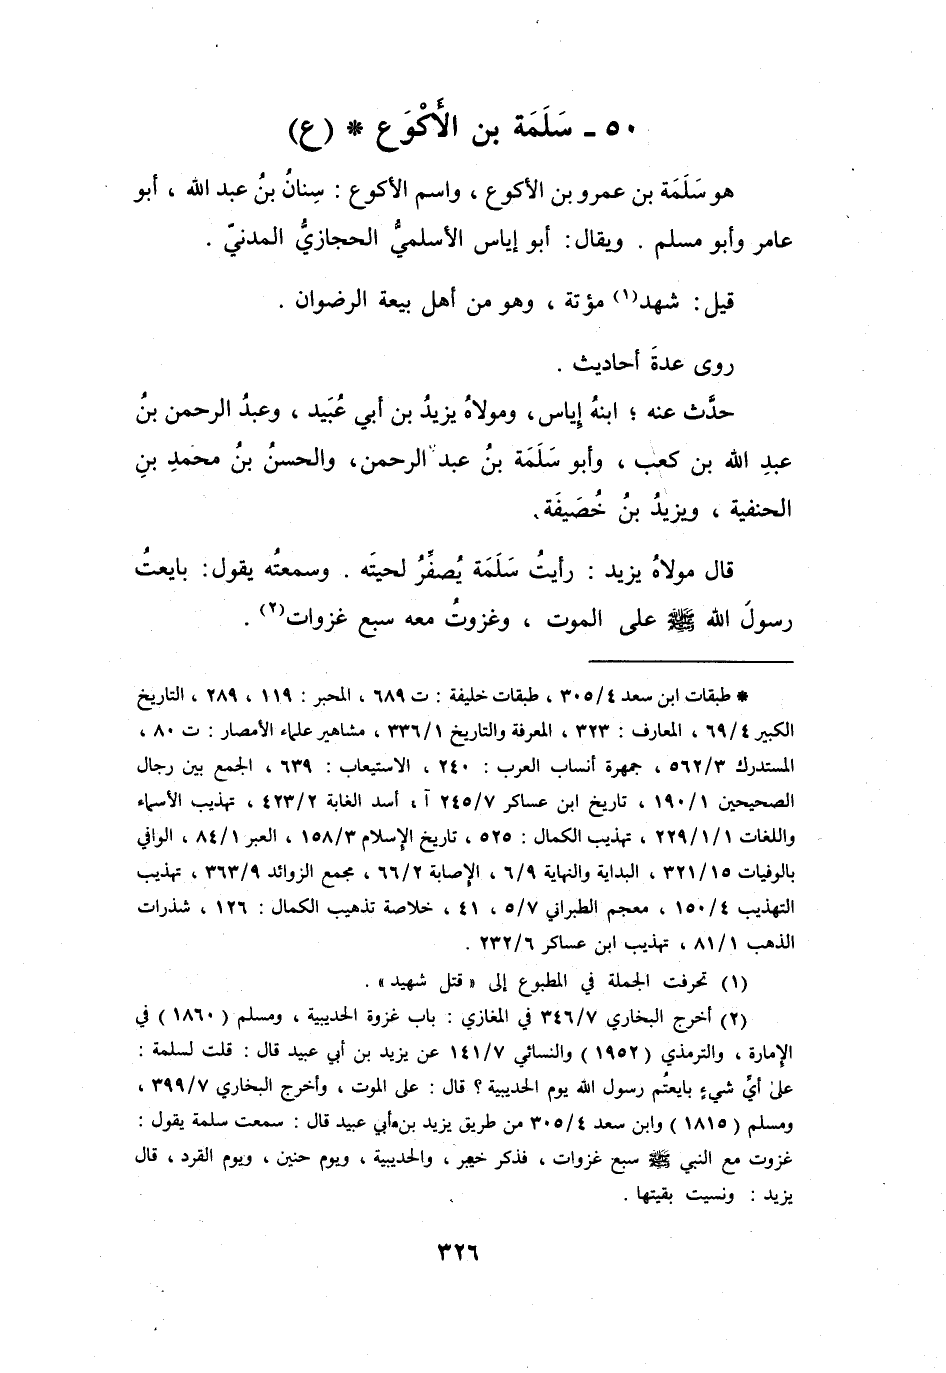 ٥٠ ـ سَلَمَة بن الأَكْوَع * (ع)
هو سَلَمَة بن عمرو بن الأكوع ، واسم الأكوع : سِنانُ بنُ عبد الله ، أبو
عامر وأبو مسلم . ويقال : أبو إياس الأسلميُّ الحجازيُّ المدنيّ .
قيل : شهد(١) مؤتة ، وهو من أهل بيعة الرضوان .
روى عدةَ أحاديث .
حدَّث عنه ؛ ابنهُ إياس، ومولاهُ يزيدُ بن أبي عُبَيد ، وعبدُ الرحمن بنُ
عبدِ الله بن كعب ، وأبو سَلَمَة بنُ عبد الرحمن، والحسنُ بنُ محمدِ بنِ
الحنفية ، ويزيدُ بنُ خُصَيفَة.
قال مولاهُ يزيد : رأيتُ سَلَمَة يُصفِّرُ لحيتَه . وسمعتُه يقول : بايعتُ
رسولَ الله ﷺ على الموت ، وغزوتُ معه سبع غزوات(٢) .
* طبقات ابن سعد ٣٠٥/٤ ، طبقات خليفة : ت ٦٨٩ ، المحبر : ١١٩ ، ٢٨٩ ، التاريخ
الكبير ٦٩/٤ ، المعارف : ٣٢٣ ، المعرفة والتاريخ ٣٣٦/١ ، مشاهير علماء الأمصار : ت ٨٠ ،
المستدرك ٥٦٢/٣ ، جمهرة أنساب العرب : ٢٤٠ ، الاستيعاب : ٦٣٩ ، الجمع بين رجال
الصحيحين ١٩٠/١ ، تاريخ ابن عساكر ٢٤٥/٧ آ ، أسد الغابة ٤٢٣/٢ ، تهذيب الأسماء
واللغات ٢٢٩/١/١ ، تهذيب الكمال : ٥٢٥ ، تاريخ الإسلام ١٥٨/٣ ، العبر ٨٤/١ ، الوافي
بالوفيات ٣٢١/١٥ ، البداية والنهاية ٦/٩ ، الإصابة ٦٦/٢ ، مجمع الزوائد ٣٦٣/٩ ، تهذيب
التهذيب ١٥٠/٤ ، معجم الطبراني ٥/٧ ، ٤١ ، خلاصة تذهيب الكمال : ١٢٦ ، شذرات
الذهب ٨١/١ ، تهذيب ابن عساكر ٢٣٢/٦ .
(١) تحرفت الجملة في المطبوع إلى « قتل شهيد » .
(٢) أخرج البخاري ٣٤٦/٧ في المغازي : باب غزوة الحديبية ، ومسلم ( ١٨٦٠ ) في
الإمارة ، والترمذي ( ١٩٥٢ ) والنسائي ١٤١/٧ عن يزيد بن أبي عبيد قال : قلت لسلمة :
على أيِّ شيءٍ بايعتُم رسول الله يوم الحديبية ؟ قال : على الموت ، وأخرج البخاري ٣٩٩/٧ ،
ومسلم ( ١٨١٥ ) وابن سعد ٣٠٥/٤ من طريق يزيد بن أبي عبيد قال : سمعت سلمة يقول :
غزوت مع النبي ﷺ سبع غزوات ، فذكر خيبر ، والحديبية ، ويوم حنين ، ويوم القرد ، قال
يزيد : ونسيت بقيتها .
٣٢٦